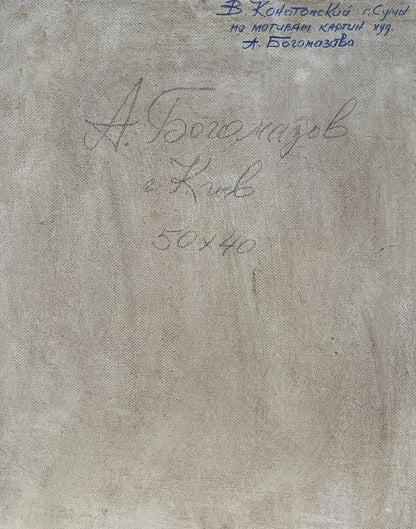 В Конотопский г. Сумы
по мотивам картин худ.
А. Богомазова
А. Богомазов
г Киев
50х40